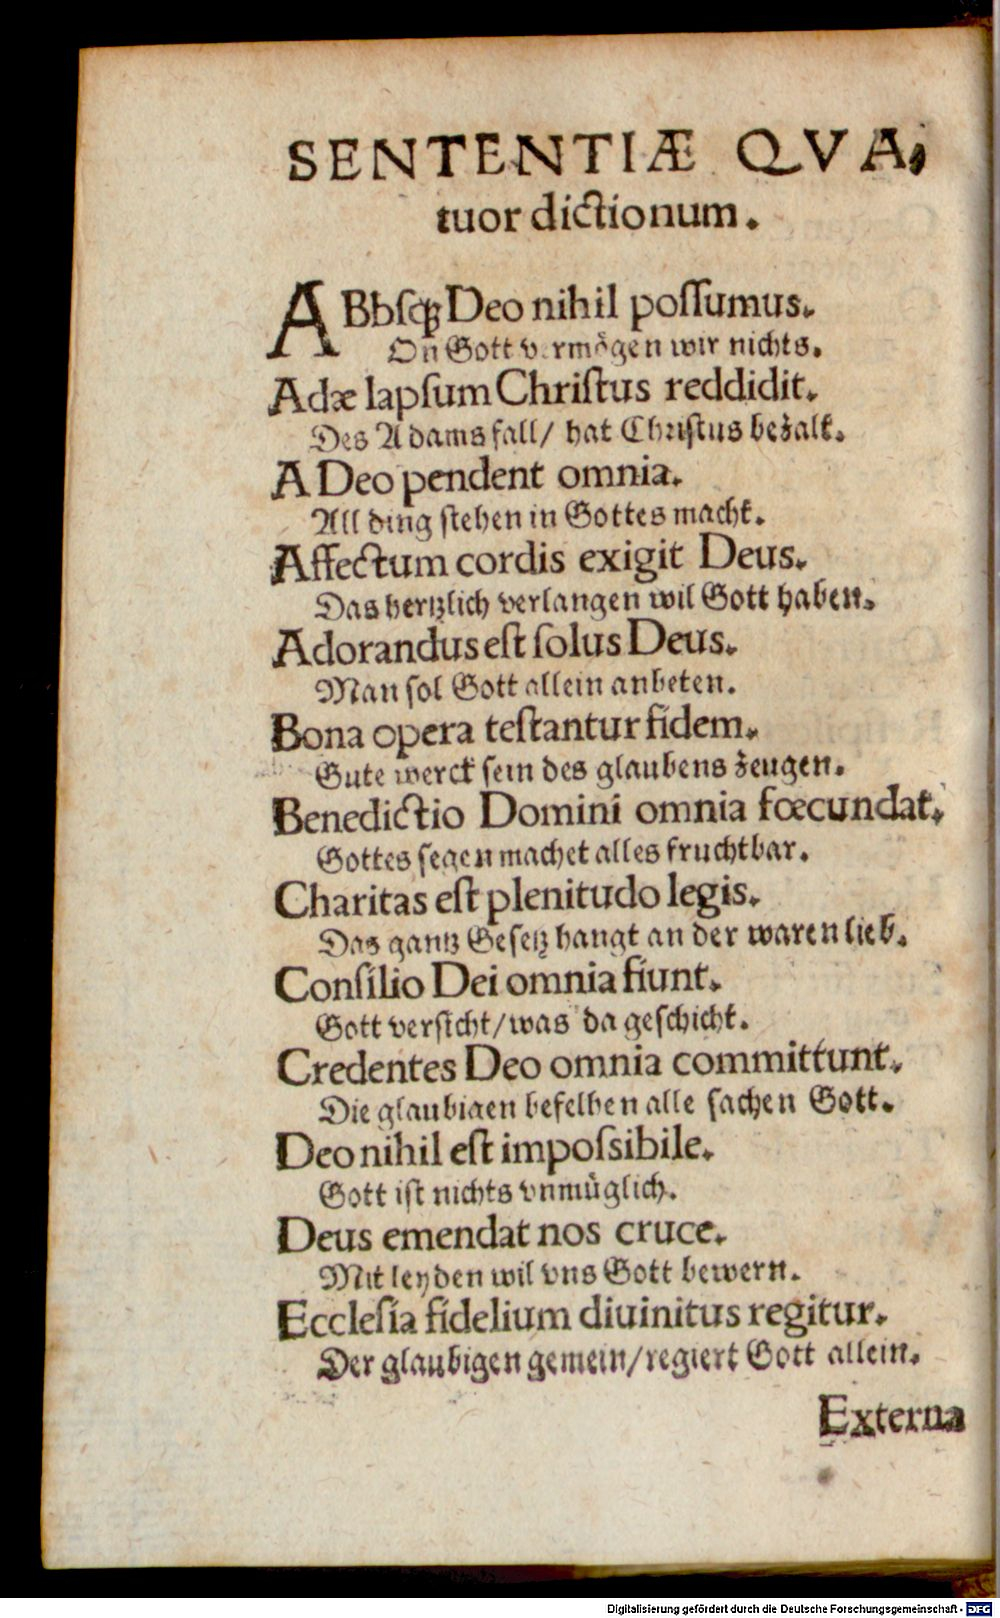 SENTENTIÆ QVA,
tuor dictionum.
ABbſqꝫ Deo nihil poſſumus.
On Gott vermoͤgen wir nichts.
Adæ lapſum Chriſtus reddidit.
Des Adams fall/ hat Chriſtus bezalt.
A Deo pendent omnia.
All ding ſtehen in Gottes macht.
Affectum cordis exigit Deus.
Das hertzlich verlangen wil Gott haben.
Adorandus eſt ſolus Deus.
Man ſol Gott allein anbeten.
Bona opera teſtantur fidem.
Gute werck ſein des glaubens zeugen.
Benedictio Domini omnia fœcundat.
Gottes ſegen machet alles fruchtbar.
Charitas eſt plenitudo legis.
Das gantz Geſetz hangt an der waren lieb.
Conſilio Dei omnia fiunt.
Gott verſicht/ was da geſchicht.
Credentes Deo omnia committunt.
Die glaubigen befelhen alle ſachen Gott.
Deo nihil eſt impoſsibile.
Gott iſt nichts vnmuͤglich.
Deus emendat nos cruce.
Mit leyden wil vns Gott bewern.
Eccleſia fidelium diuinitus regitur.
Der glaubigen gemein/ regiert Gott allein.
Externa
Digitalisierung gefördert durch die Deutsche Forschungsgemeinschaft - DFG